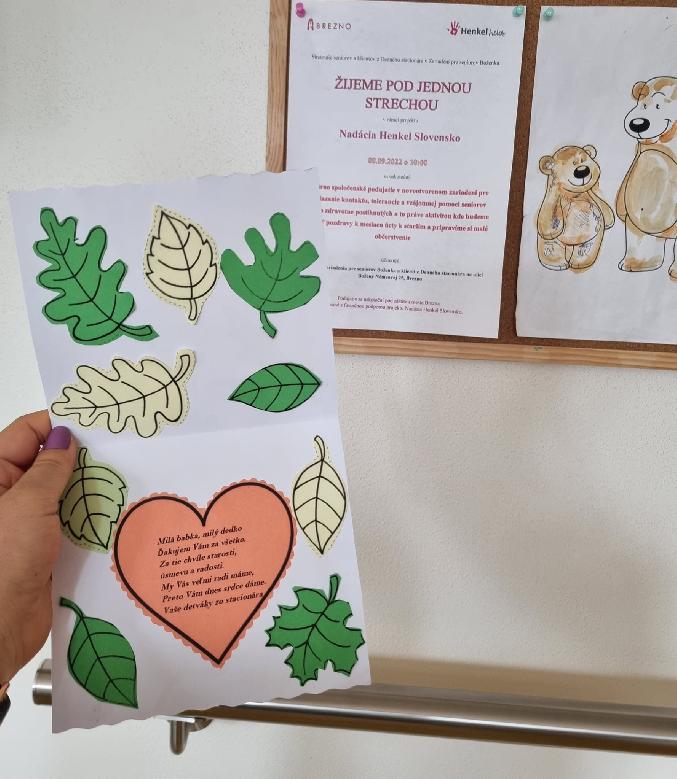 BREZNO
Henkel
ŽIJEME POD JEDNOU
STRECHOU
Nadácia Henkel Slovensko
09.09.2022 o 10:00
spoločenské podujatie v novootvorenom zariadení pre
kontaktu, tolerancie a vzájomnej pomoci seniorov
zdravotne postihnutých a to práve aktivitou kde budeme
pozdravy k mesiacu úcty k starším a pripravíme si malé
občerstvenie
Boženy Němcovej 24, Brezno
Milá babka, milý dedko
Ďakujem Vám za všetko.
Za tie chvíle starosti,
úsmevu a radosti.
My Vás veľmi radi máme,
Preto Vám dnes srdce dáme.
Vaše detváky zo stacionára